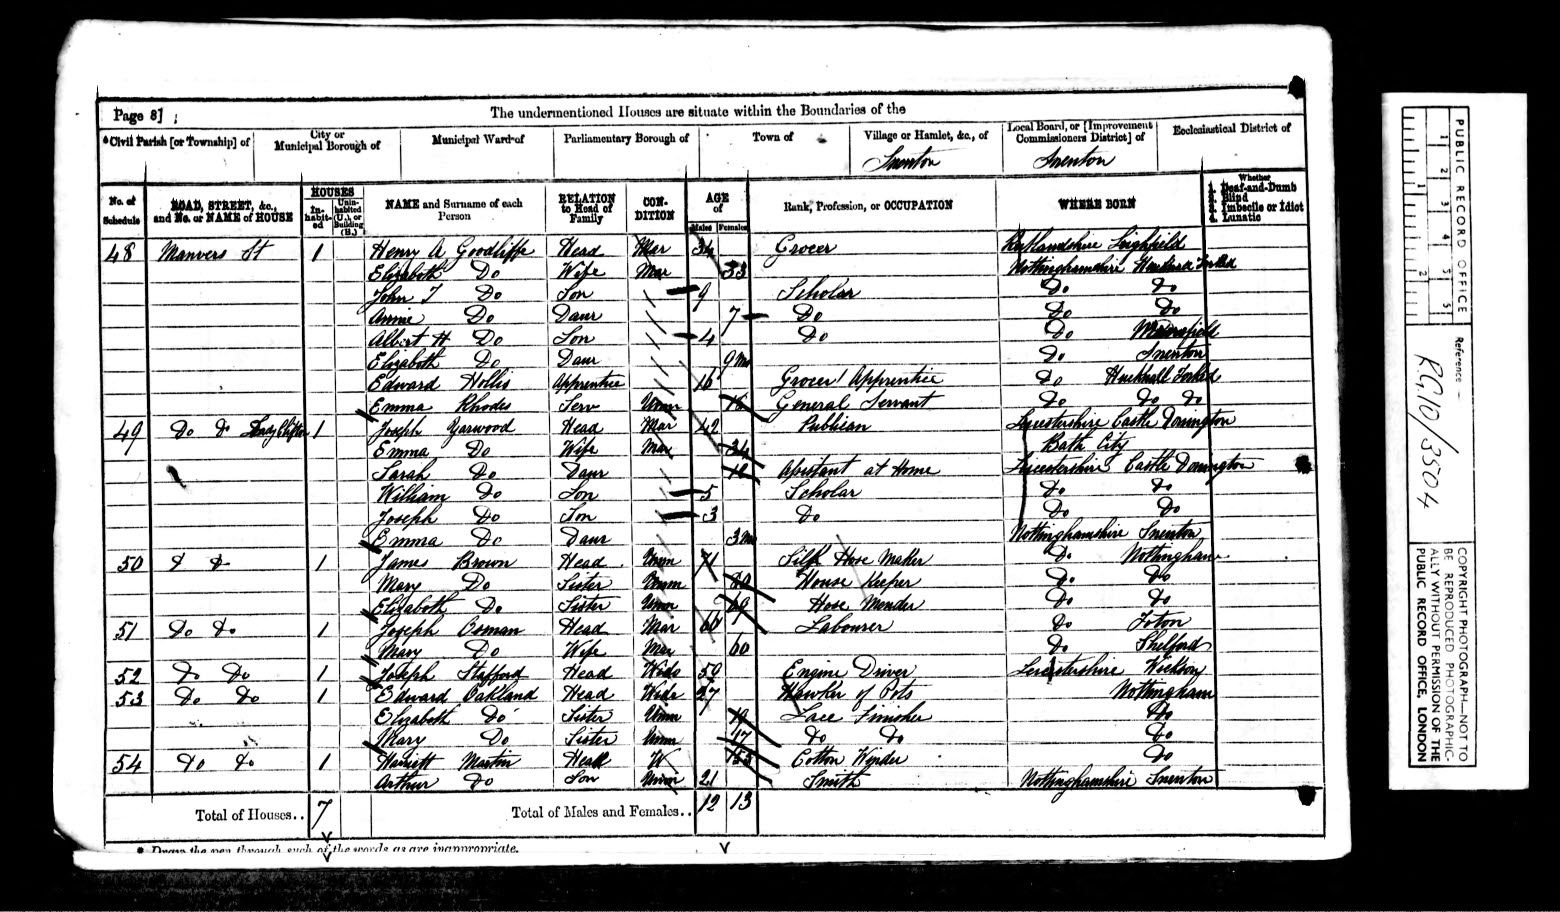 Page 8]
The undermentioned Houses are situate within the Boundaries of the
*Civil Parish [or Township] of
City or Municipal Borough of
Municipal Ward of
Parliamentary Borough of
Town of
Village or Hamlet, &c., of
Local Board, or [Improvement Commissioners District] of
Ecclesiastical District of
Snenton
Snenton
No. of Schedule
ROAD, STREET, &c., and No. or NAME of HOUSE
HOUSES
In-habit-ed
Unin-habited (U.), or Building (B.)
NAME and Surname of each Person
RELATION to Head of Family
CON-DITION
AGE of
Males Females
Rank, Profession, or OCCUPATION
WHERE BORN
Whether
1. Deaf-and-Dumb
2. Blind
3. Imbecile or Idiot
4. Lunatic
48 Manvers St 1 Henry A Goodliffe Head Mar 34 Grocer Rutlandshire Leighfield
Elizabeth Do Wife Mar 33 Nottinghamshire
John T Do Son 9 Scholar Do Do
Annie Do Daur 7 Do Do Do
Albert H Do Son 4 Do Do
Elizabeth Do Daur 9 Mo Do Snenton
Edward Hollis Apprentice 16 Grocer's Apprentice Do Hucknall Torkard
Emma Rhodes Serv Unm General Servant Do Do Do
49 Do Do Lady Clifton 1 Joseph Yarwood Head Mar 42 Publican Leicestershire Castle Donington
Emma Do Wife Mar 34 Bath City
Sarah Do Daur Assistant at Home Leicestershire Castle Donington
William Do Son 5 Scholar Do Do
Joseph Do Son 3 Do Do Do
Emma Do Daur 3 Mo Nottinghamshire Snenton
50 Do Do 1 James Brown Head Unm 71 Silk Hose Maker Do Nottingham
Mary Do Sister Unm House Keeper Do Do
Elizabeth Do Sister Unm 69 Hose Mender Do Do
51 Do Do 1 Joseph Osman Head Mar 66 Labourer Do Toton
Mary Do Wife Mar 60 Do Shelford
52 Do Do 1 Joseph Stafford Head Wido 59 Engine Driver Leicestershire
53 Do Do 1 Edward Oakland Head Widr 27 Hawker of Pots Nottingham
Elizabeth Do Sister Unm 19 Lace Finisher Do
Mary Do Sister Unm 17 Do Do Do
54 Do Do 1 Harriett Martin Head W Cotton Winder Do
Arthur Do Son Unm 21 Smith Nottinghamshire Snenton
Total of Houses.. 7
Total of Males and Females.. 12 13
* Draw the pen through such of the words as are inappropriate.
PUBLIC RECORD OFFICE
1 2 3 4 5 6
1 2
Reference:-
RG10/3504
COPYRIGHT PHOTOGRAPH—NOT TO
BE REPRODUCED PHOTOGRAPHIC-
ALLY WITHOUT PERMISSION OF THE
PUBLIC RECORD OFFICE, LONDON